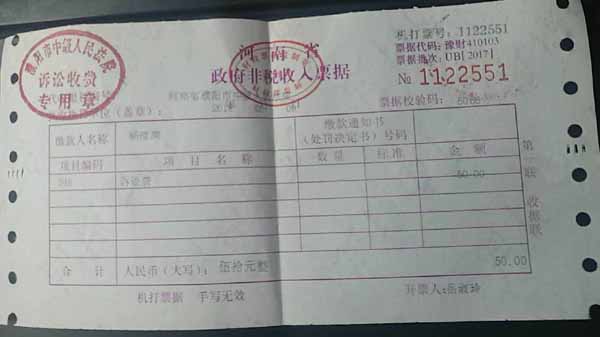 机打票号：1122551
河南省
票据代码：豫财410103
政府非税收入票据
票据批次：UB[2017]
№ 1122551
濮阳市中级人民法院
诉讼收费
专用章
河南省濮阳市中
单位（盖章）：
票据校验码：
缴款人名称
缴款通知书
（处罚决定书）号码
项目编码 项目名称 数量 标准 金额
诉讼费 50.00
第 联 收据联
合计 人民币（大写）：伍拾元整 50.00
机打票据 手写无效 开票人：岳淑玲